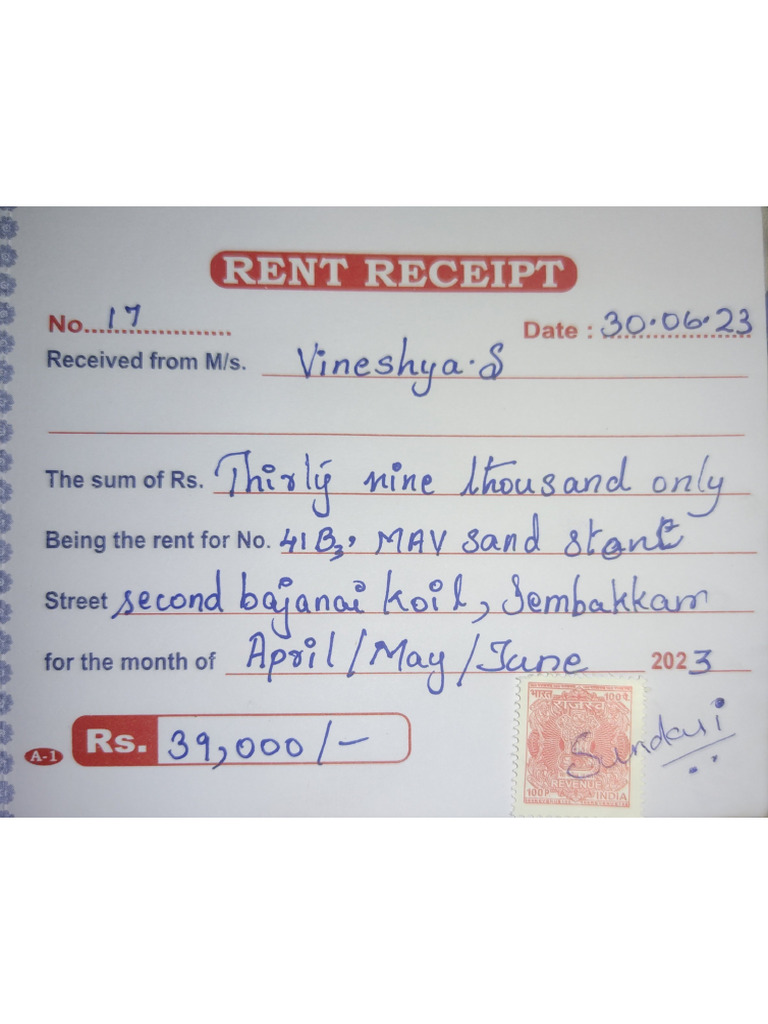 RENT RECEIPT
No. 17 Date : 30.06.23
Received from M/s. Vineshya.S
The sum of Rs. Thirty nine thousand only
Being the rent for No. 41B3, MAV sand stone
Street second bajanai koil, Sembakkam
for the month of April/May/June 2023
A-1 Rs. 39,000/-
भारत 100पै
राजस्व
Sundari
REVENUE
100P INDIA